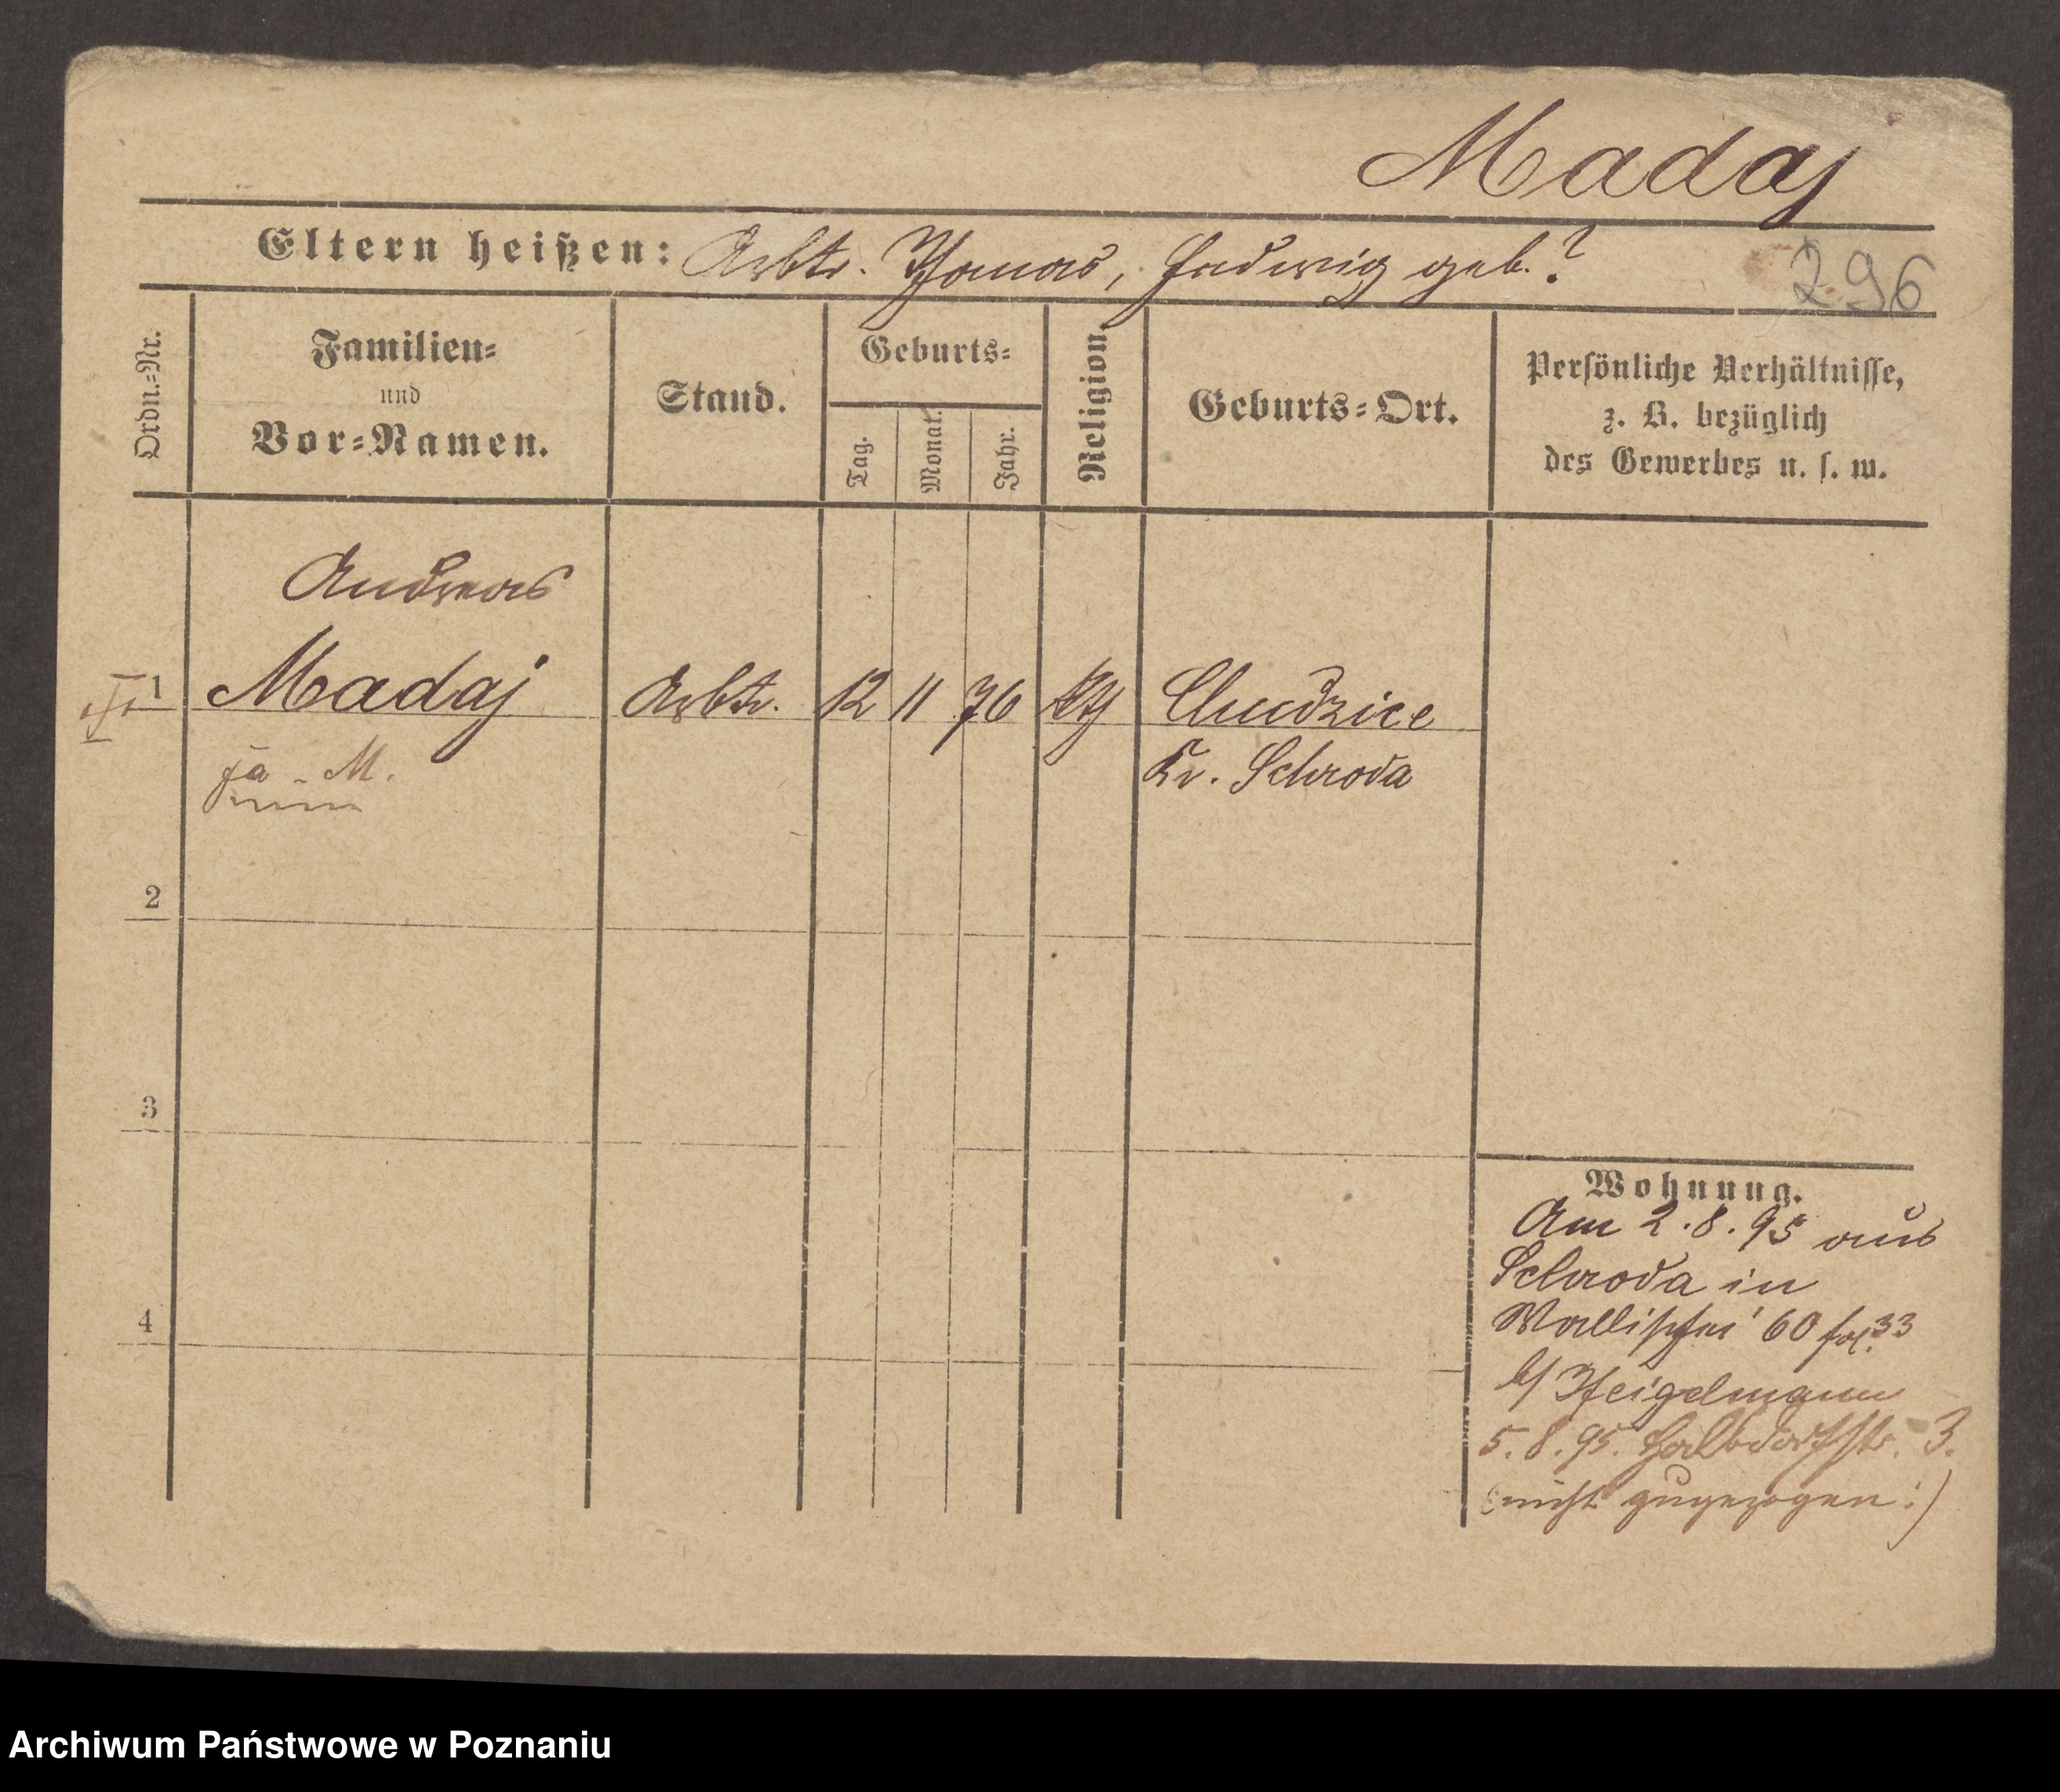 Madaj
Eltern heißen: Arbtr. Thomas, Hedwig geb.?
296
Ordn.-Nr.
Familien-
und
Vor-Namen.
Stand.
Geburts-
Tag.
Monat.
Jahr.
Religion
Geburts-Ort.
Persönliche Verhältnisse,
z. B. bezüglich
des Gewerbes u. s. w.
Andreas
1 Madaj Arbtr. 12 11 76 kth Chudzice
ja - M. Kr. Schroda
2
3
4
Wohnung.
Am 2.8.95 aus
Schroda in
Wallischei 60 fol. 33
b/ Heigelmann
5.8.95. Halbdorfstr. 3.
(nicht zugezogen:)
Archiwum Państwowe w Poznaniu